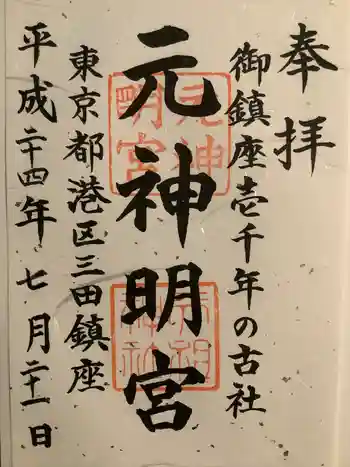 奉拝
御鎮座壱千年の古社
元神明宮
東京都港区三田鎮座
平成二十四年七月二十一日
元神明宮